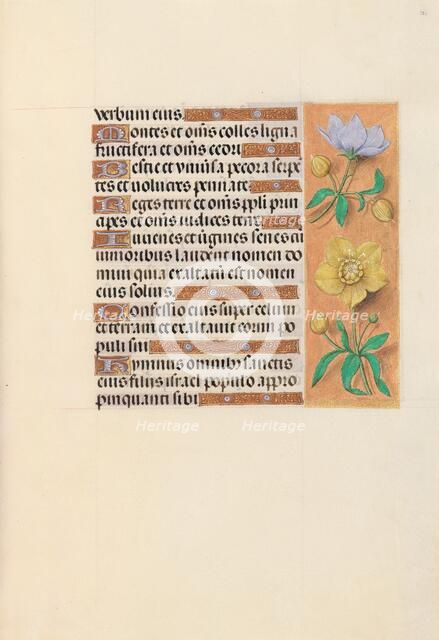 verbum eius.
Montes et om̄s colles ligna
fructifera et om̄s cedri
Bestie et vniuersa pecora serpē
tes et volucres pennate.
Reges terre et om̄s pp̄li prin
cipes et om̄s iudices terre
Iuuenes et v̄gines senes cū
iunioribus laudent nomen do
mini quia exaltatū est nomen
eius solius.
Confessio eius super celum
et terram et exaltauit cornu po
puli sui
Hymnus omnibꝰ sanctis
eius filijs israel populo appro
pinquanti sibi
heritage
Images
Heritage
Heritage
Heritage